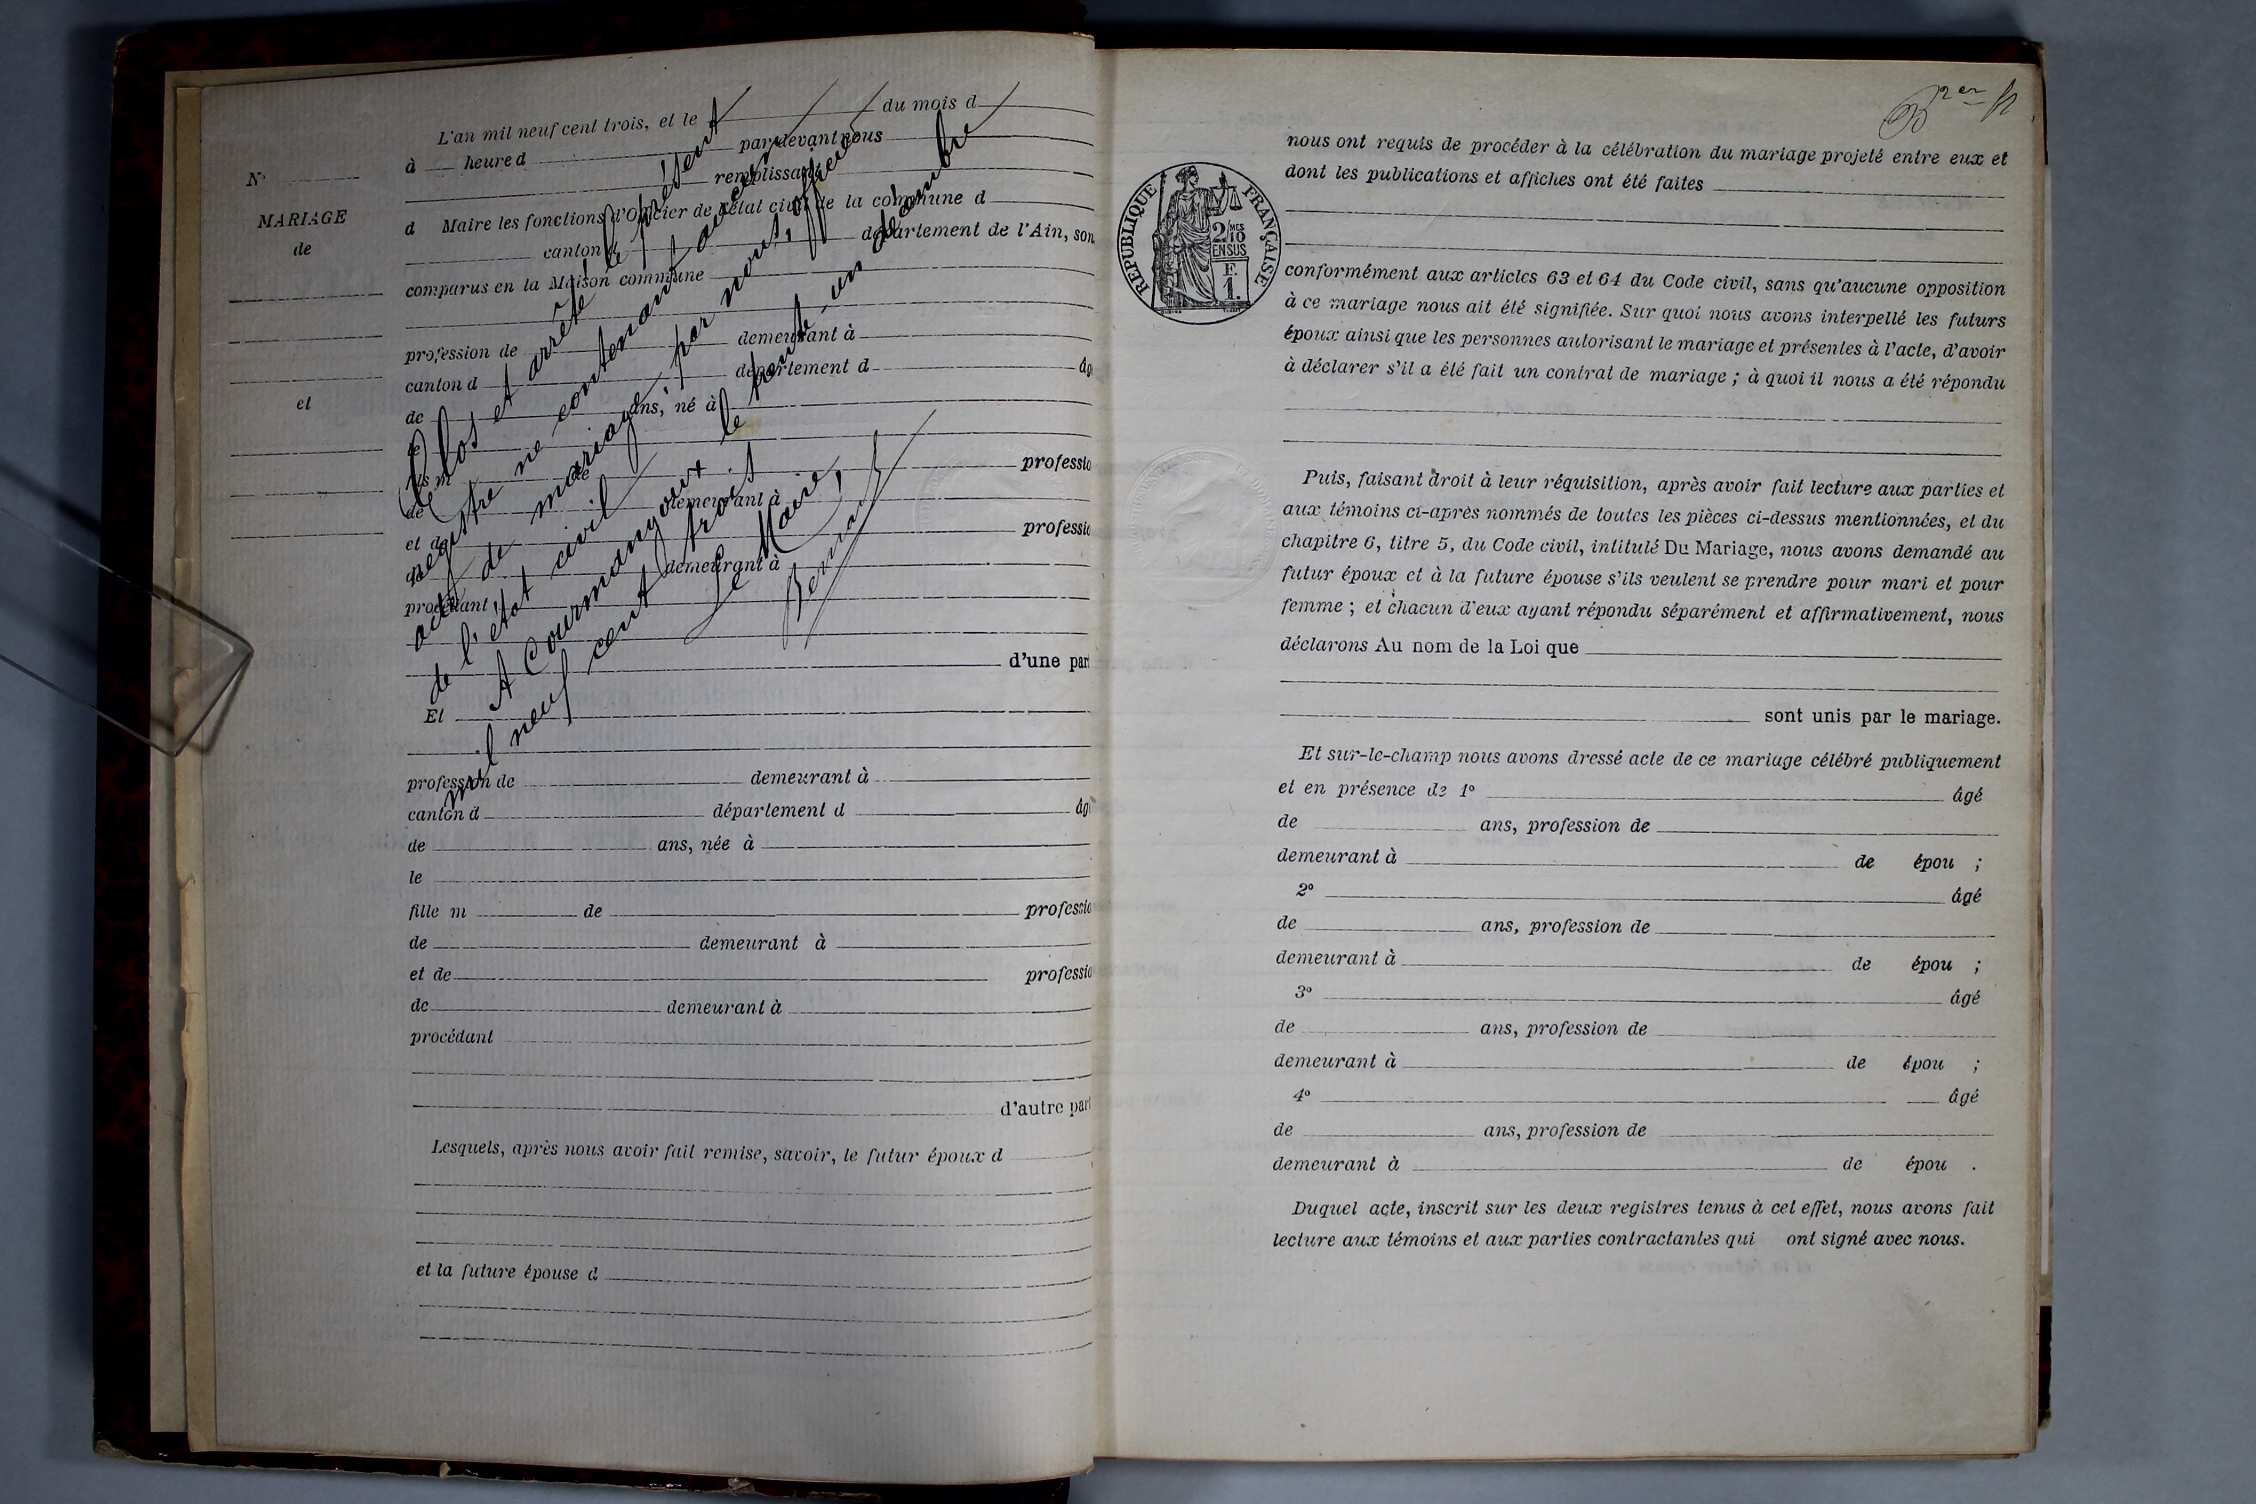 N°
MARIAGE
de
et
L'an mil neuf cent trois, et le du mois d
à heure d pardevant nous
remplissant
d Maire les fonctions d'Officier de l'état civil de la commune d
canton d département de l'Ain, son
comparus en la Maison commune
profession de demeurant à
canton d département d âg
de ans, né à
le
fils m de professio
de demeurant à
et de professio
de demeurant à
procédant
d'une part
Clos et arrêté le présent
registre ne contenant aucun
acte de mariage, par nous, officier
de l'état civil
A Courmangoux le trente-un décembre
mil neuf cent trois
Le Maire,
Bernard
Et
profession de demeurant à
canton d département d âg
de ans, née à
le
fille m de professio
de demeurant à
et de professio
de demeurant à
procédant
d'autre part
Lesquels, après nous avoir fait remise, savoir, le futur époux d
et la future épouse d
2er
nous ont requis de procéder à la célébration du mariage projeté entre eux et
dont les publications et affiches ont été faites
RÉPUBLIQUE FRANÇAISE
2/10MES
EN SUS
F.
1.
conformément aux articles 63 et 64 du Code civil, sans qu'aucune opposition
à ce mariage nous ait été signifiée. Sur quoi nous avons interpellé les futurs
époux ainsi que les personnes autorisant le mariage et présentes à l'acte, d'avoir
à déclarer s'il a été fait un contrat de mariage ; à quoi il nous a été répondu
Puis, faisant droit à leur réquisition, après avoir fait lecture aux parties et
aux témoins ci-après nommés de toutes les pièces ci-dessus mentionnées, et du
chapitre 6, titre 5, du Code civil, intitulé Du Mariage, nous avons demandé au
futur époux et à la future épouse s'ils veulent se prendre pour mari et pour
femme ; et chacun d'eux ayant répondu séparément et affirmativement, nous
déclarons Au nom de la Loi que
sont unis par le mariage.
Et sur-le-champ nous avons dressé acte de ce mariage célébré publiquement
et en présence de 1° âgé
de ans, profession de
demeurant à de épou ;
2° âgé
de ans, profession de
demeurant à de épou ;
3° âgé
de ans, profession de
demeurant à de épou ;
4° âgé
de ans, profession de
demeurant à de épou .
Duquel acte, inscrit sur les deux registres tenus à cet effet, nous avons fait
lecture aux témoins et aux parties contractantes qui ont signé avec nous.